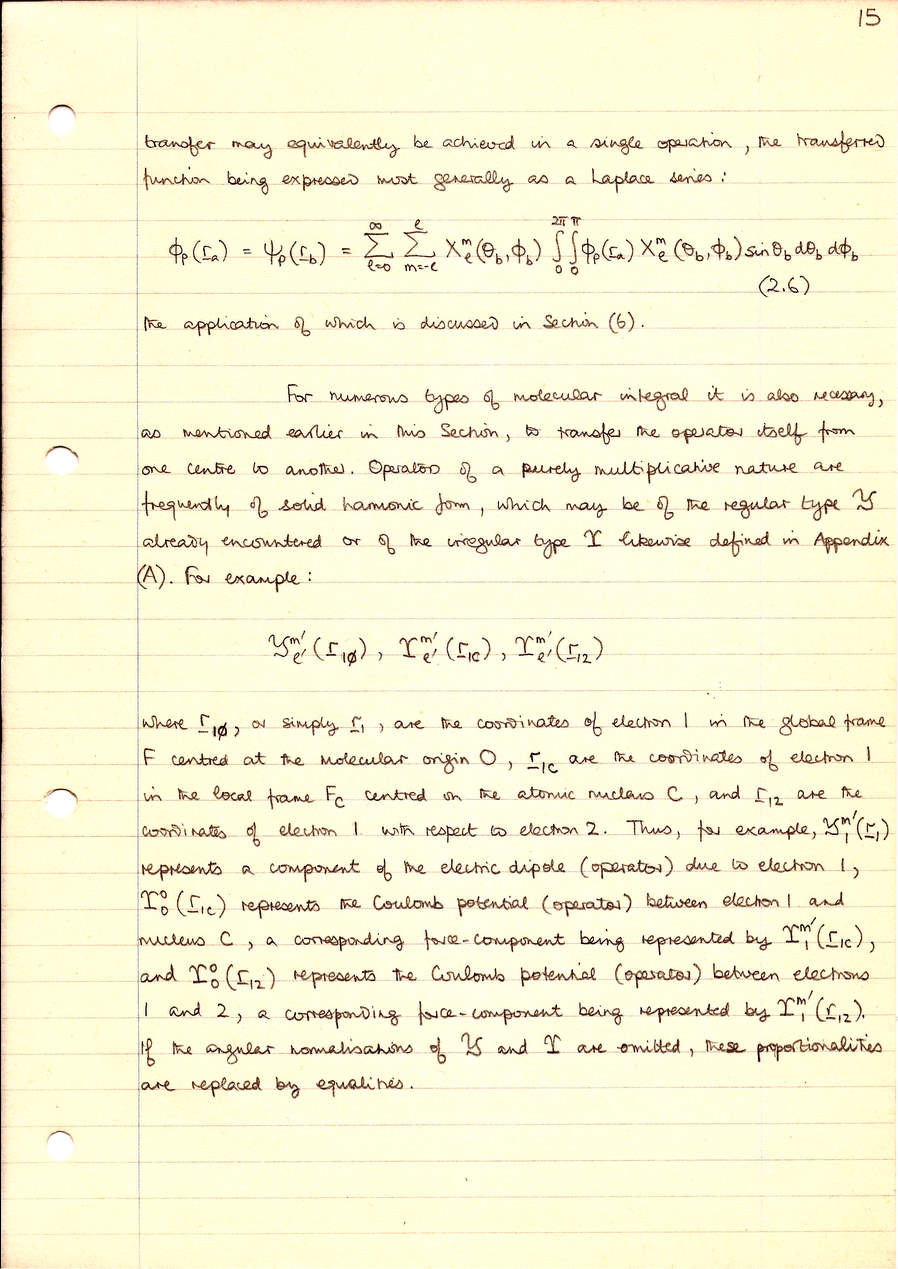 15
transfer may equivalently be achieved in a single operation, the transferred
function being expressed most generally as a Laplace series:
ϕₚ(r̲ₐ) = ψₚ(r̲_b) = ∑_{ℓ=0}^{∞} ∑_{m=-ℓ}^{ℓ} X_ℓ^m(θ_b, ϕ_b) ∫_0^{2π} ∫_0^{π} ϕₚ(r̲ₐ) X_ℓ^m(θ_b, ϕ_b) sin θ_b dθ_b dϕ_b
(2.6)
the application of which is discussed in Section (6).
For numerous types of molecular integral it is also necessary,
as mentioned earlier in this Section, to transfer the operator itself from
one centre to another. Operators of a purely multiplicative nature are
frequently of solid harmonic form, which may be of the regular type 𝒴
already encountered or of the irregular type ϒ likewise defined in Appendix
(A). For example:
𝒴_{ℓ'}^{m'}(r̲_{1ø}), ϒ_{ℓ'}^{m'}(r̲_{1C}), ϒ_{ℓ'}^{m'}(r̲_{12})
where r̲_{1ø}, or simply r̲_1, are the coordinates of electron 1 in the global frame
F centred at the molecular origin O, r̲_{1C} are the coordinates of electron 1
in the local frame F_C centred on the atomic nucleus C, and r̲_{12} are the
coordinates of electron 1 with respect to electron 2. Thus, for example, 𝒴_1^{m'}(r̲_1)
represents a component of the electric dipole (operator) due to electron 1,
ϒ_0^0(r̲_{1C}) represents the Coulomb potential (operator) between electron 1 and
nucleus C, a corresponding force-component being represented by ϒ_1^{m'}(r̲_{1C}),
and ϒ_0^0(r̲_{12}) represents the Coulomb potential (operator) between electrons
1 and 2, a corresponding force-component being represented by ϒ_1^{m'}(r̲_{12}).
If the angular normalisations of 𝒴 and ϒ are omitted, these proportionalities
are replaced by equalities.